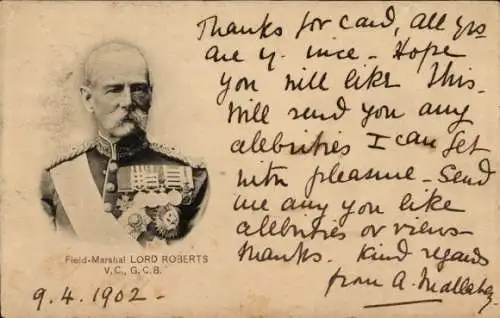 Thanks for card, all yrs
are v. nice - Hope
you will like this.
Will send you any
celebrities I can get
with pleasure - Send
me any you like
celebrities or views -
thanks. Kind regards
from A.
Field-Marshal LORD ROBERTS
V.C., G.C.B.
9.4.1902 -